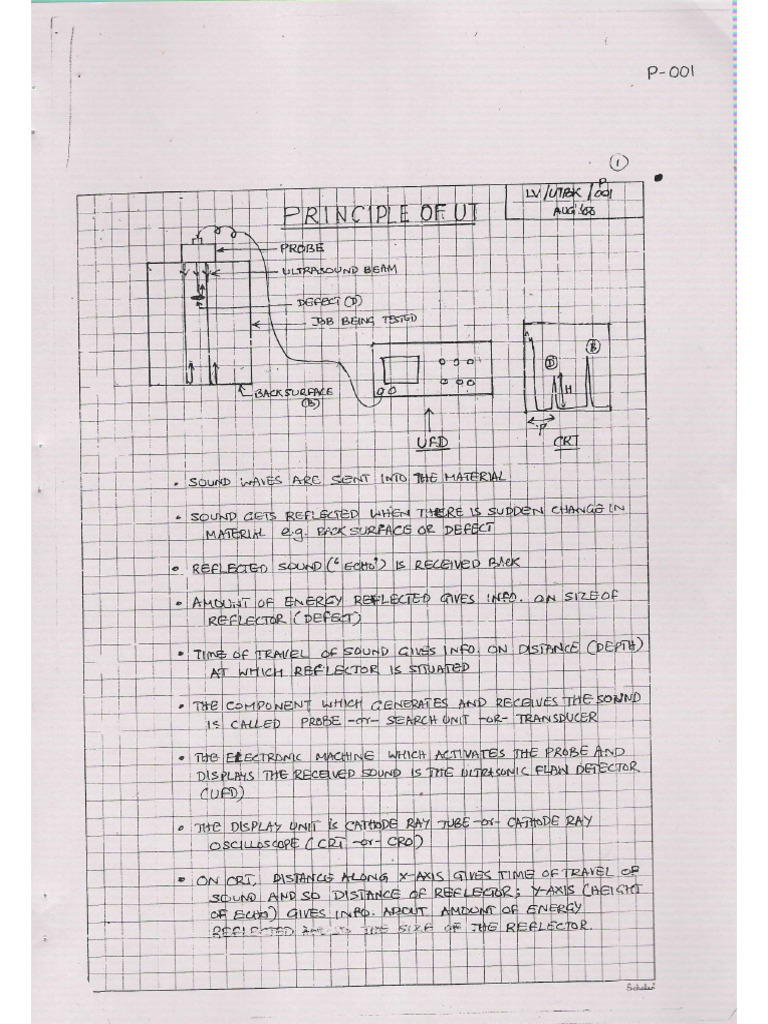 P-001
1
LV/UTBK/P001
AUG'88
PRINCIPLE OF UT
PROBE
ULTRASOUND BEAM
DEFECT (D)
JOB BEING TESTED
BACK SURFACE
(B)
D
B
H
P
UFD
CRT
• SOUND WAVES ARE SENT INTO THE MATERIAL
• SOUND GETS REFLECTED WHEN THERE IS SUDDEN CHANGE IN
MATERIAL e.g. BACK SURFACE OR DEFECT
• REFLECTED SOUND ("ECHO") IS RECEIVED BACK
• AMOUNT OF ENERGY REFLECTED GIVES INFO. ON SIZE OF
REFLECTOR (DEFECT)
• TIME OF TRAVEL OF SOUND GIVES INFO. ON DISTANCE (DEPTH)
AT WHICH REFLECTOR IS SITUATED
• THE COMPONENT WHICH GENERATES AND RECEIVES THE SOUND
IS CALLED PROBE -or- SEARCH UNIT -or- TRANSDUCER
• THE ELECTRONIC MACHINE WHICH ACTIVATES THE PROBE AND
DISPLAYS THE RECEIVED SOUND IS THE ULTRASONIC FLAW DETECTOR
(UFD)
• THE DISPLAY UNIT IS CATHODE RAY TUBE -or- CATHODE RAY
OSCILLOSCOPE (CRT -or- CRO)
• ON CRT, DISTANCE ALONG X-AXIS GIVES TIME OF TRAVEL OF
SOUND AND SO DISTANCE OF REFLECTOR; Y-AXIS (HEIGHT
OF ECHO) GIVES INFO. ABOUT AMOUNT OF ENERGY
REFLECTED THE SIZE OF THE REFLECTOR.